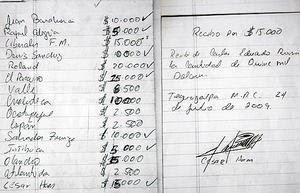 Juan Barahona $10.000
Rafael Alegria $5.000
Liberales F.M. $15.000
Denis Sanchez $10.000
Roland $20.000
El Paraiso $25.000
Valle $6.500
Choluteca $10.000
Ocotepeque $2.500
Lepara $2.500
Salvador Zuniga $10.000
Intibuca $5.000
Olancho $15.000
Atlantida $2.500
Cesar Ham $15.000
Recibo por $15.000
Recibi de Carlos Eduardo
la cantidad de Quince mil
Dolares
Tegucigalpa M.D.C. 24
de Julio de 2009.
Cesar Ham